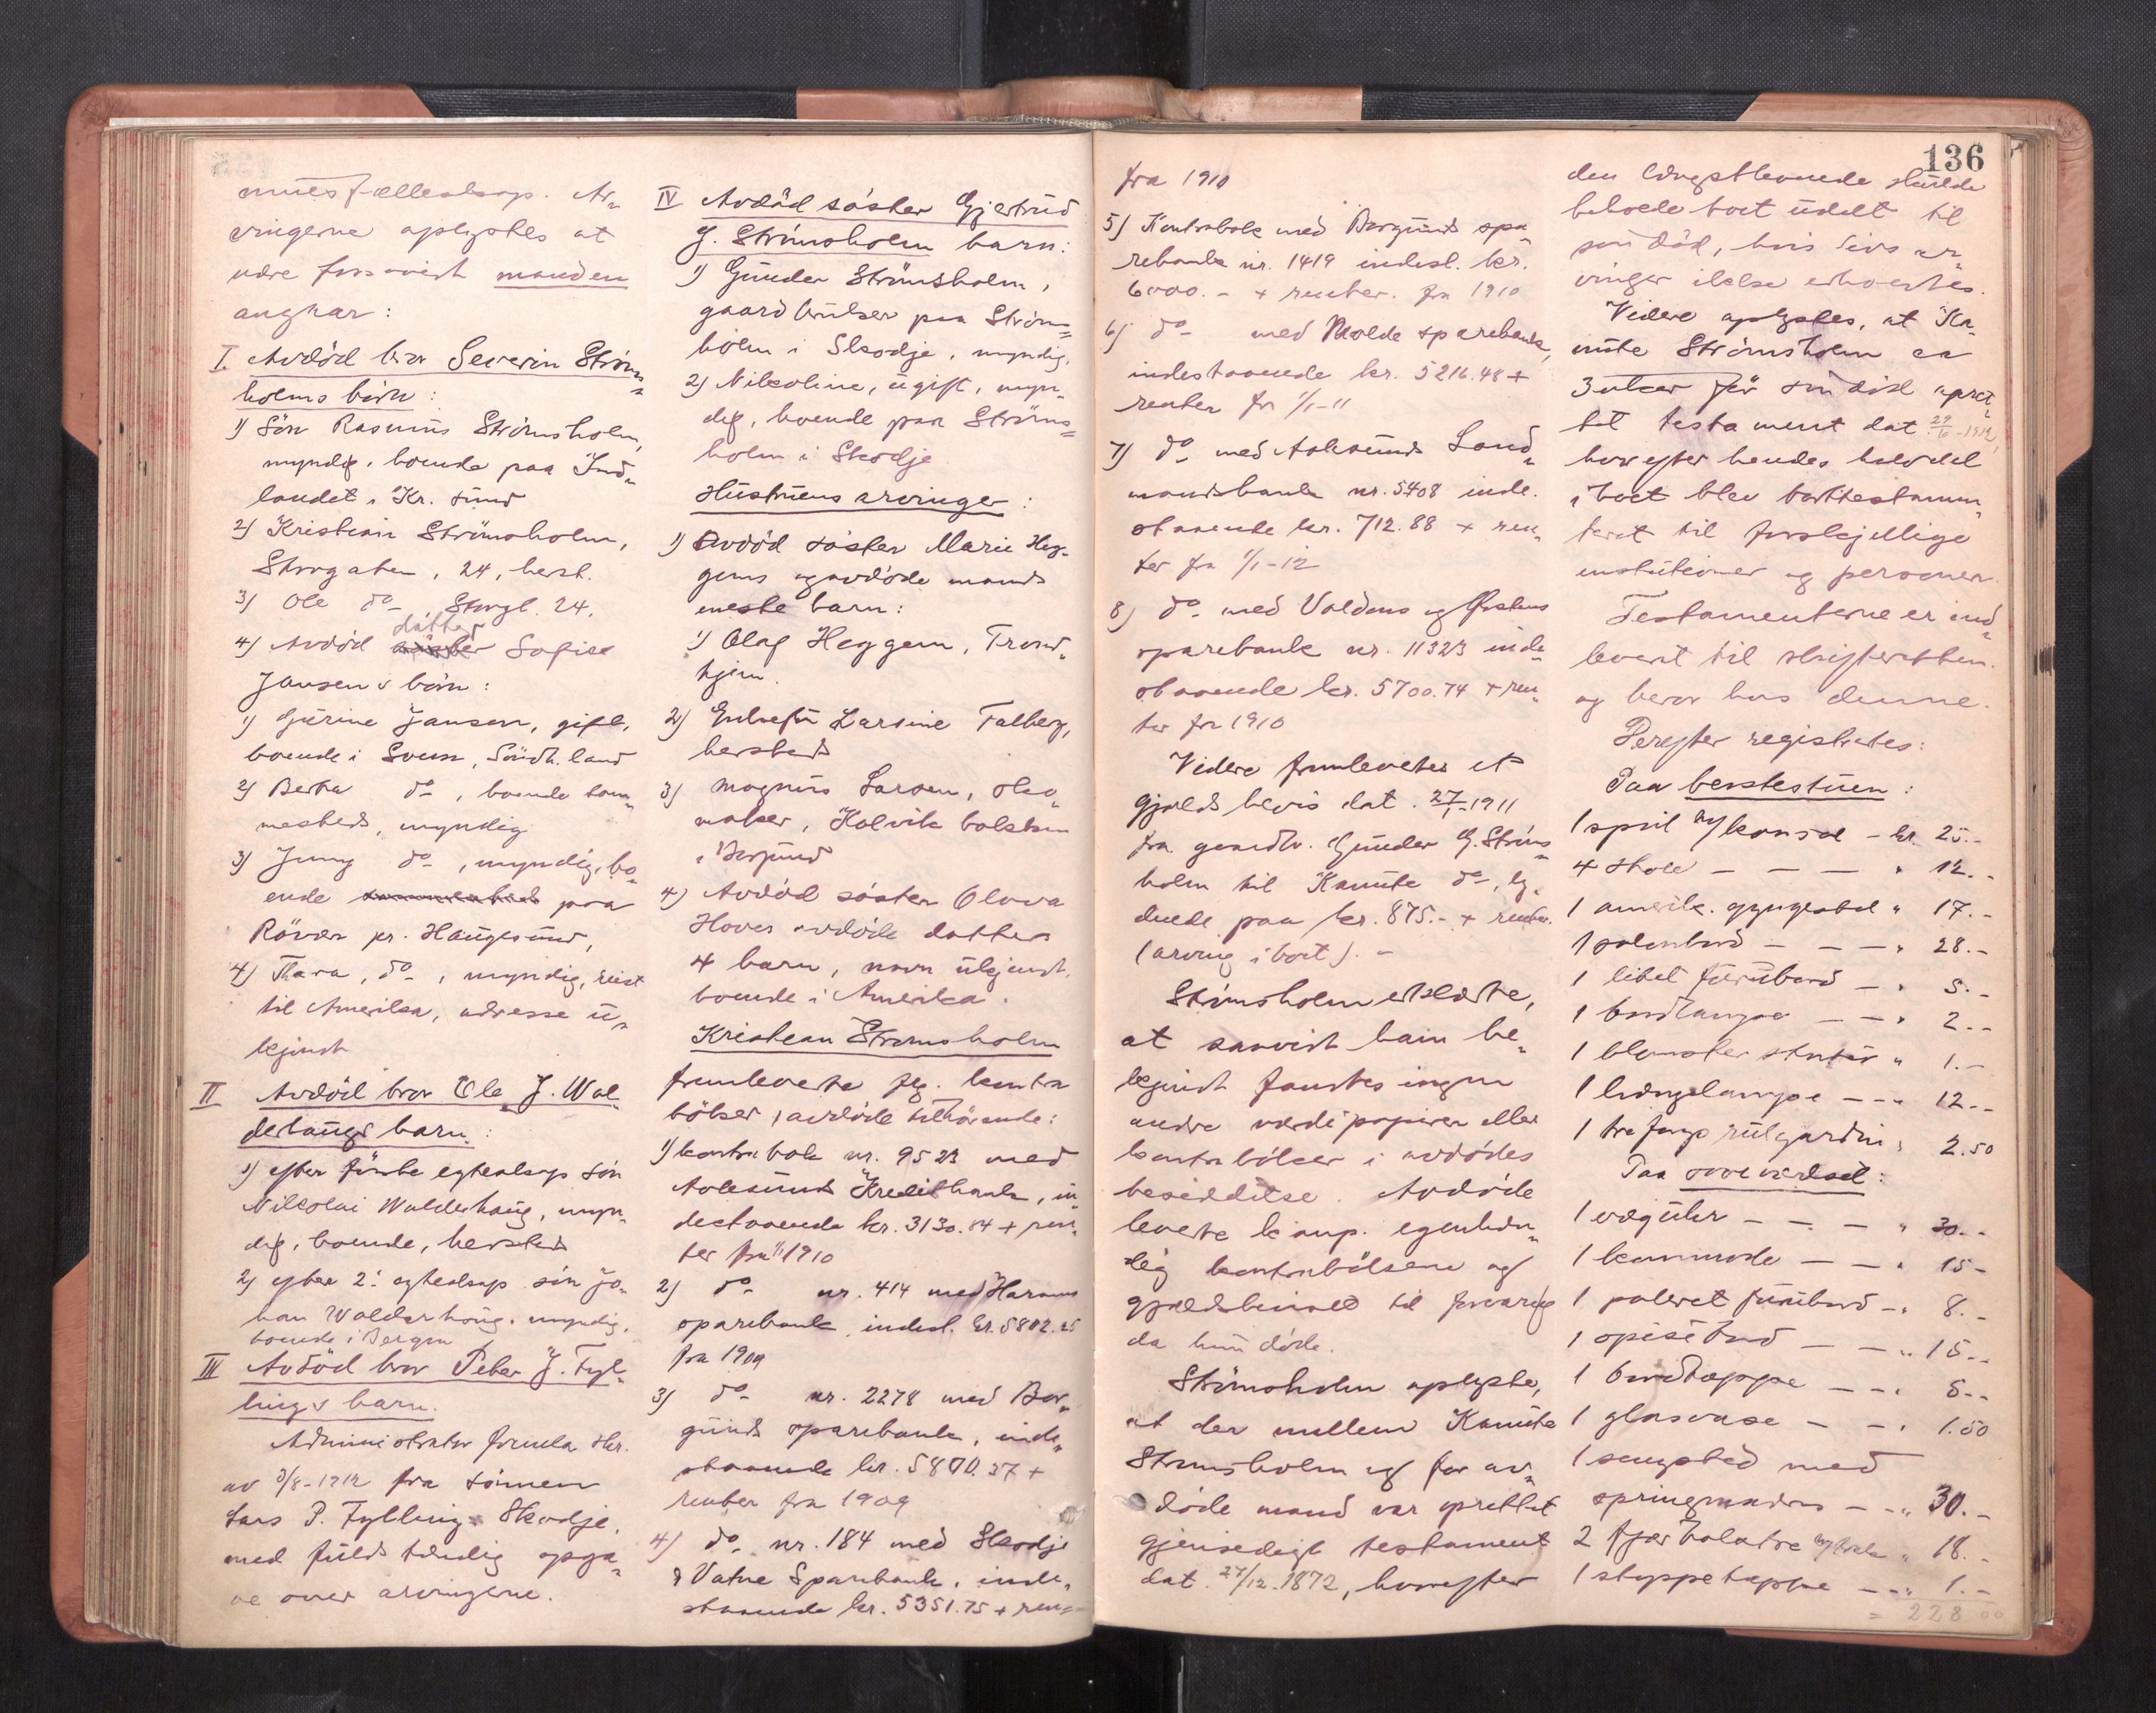 munesfællesskap. Ar„
vingerne oplystes at
være forsaavidt manden
angaar:
I. Avdöd bror Severin Ström„
holms börn:
1) Sön Rasmus Strömsholm,
myndig, boende paa Ind„
landet, Kr. sund
2) Kristian Strömsholm,
Storgaten, 24, herst.
3) Ole do , Storgt. 24.
4) Avdöd datter Sofise
Jansens börn:
1) Gurine Jansen, gift,
boende i Sveen, Söndh. land
2) Berta do , boende sam„
mesteds, myndig
3) Jenny do , myndig, bo„
ende sammesteds paa
Röver pr. Haugesund,
4) Thara, do , myndig, reist
til Amerika, adresse u„
kjendt
II Avdöd bror Ole J. Wal„
derhaugs barn:
1) efter förste egteskap sön
Nikolai Walderhaug, myn„
dig, boende, hersteds
2) efter 2. egteskap sön Jo„
han Walderhaug, myndig,
boende i Bergen
III Avdöd bror Peter J. Fyl„
lings barn.
Administrator fremla skr.
av 3/8-1912 fra sönnen
Lars P. Fylling Skodje,
med fuldstændig opga„
ve over arvingerne.
IV Avdöd söster Gjertrud
J. Strömsholm barn:
1) Gunder Strömsholm,
gaardbruker paa Ström„
holm i Skodje, myndig,
2) Nikoline, ugift, myn„
dig, boende paa Ströms„
holm i Skodje
Hustruens arvinger:
1) Avdöd söster Marie Heg„
gems og avdöde mands
eneste barn:
1) Olaf Heggem, Trond„
hjem.
2) Enkefru Larsine Falberg,
hersteds
3) Magnus Larsen, sko„
maker, Kolvik bolsken
i Borgund
4) Avdöd söster Olava
Hoves avdöde datters
4 barn, navn ukjendt,
boende i Amerika.
Kristian Strömsholm
fremleverte flg. kontra
böker, avdöde tilhörende:
1) kontrabok nr. 9523 med
Aalesunds Kreditbank, in
destaaende kr. 3130.84 + ren„
ter fra 1/1 1910
2) do nr. 414 med Harams
sparebank, indest. kr. 5802.25
fra 1909
3) do nr. 2278 med Bor„
gunds sparebank, inde„
staaende kr. 5800.37 +
renter fra 1909
4) do nr. 184 med Skodje
& Vatne Sparebank, inde„
staaende kr. 5351.75 + ren„
136
fra 1910
5) Kontrabok med Borgunds spa„
rebank nr. 1419 indest. kr.
6000.- + renter. fra 1910
6) do med Molde sparebank,
indestaaende kr. 5216.48 +
renter fr 1/1-11
7) do med Aalesunds Land„
mandsbank nr. 5408 inde„
staaende kr. 712.88 + ren„
ter fra 1/1-12
8) do med Voldens og Ørstens
sparebank nr. 11323 inde„
staaende kr. 5700.74 + ren„
ter fra 1910
Videre fremlevertes et
gjeldsbevis dat. 27/ -1911
fra gaardbr. Gunder G. Ströms„
holm til Kanute do, ly„
dende paa kr. 875.- + renter.
(arving i boet). -
Strömsholm erklærte,
at saavidt ham be„
kjendt fandtes ingen
andre værdipapirer eller
kontraböker i avdödes
besiddelse. Avdöde
leverte komp. egenhæn„
dig kontrabökerne og
gjeldsbeviset til forvaring
da hun döde.
Strömsholm oplyste,
at der mellem Kanute
Strömsholm og før av„
döde mand var oprettet
gjensidigt testament
dat. 27/12-1872, hvorefter
den længstlevende skulde
beholde boet udelt til
sin död, hvis livsar„
vinger ikke erhvertes.
Videre oplystes, at Ka„
nute Strömsholm ca
3 uker för sin död opret„
tet testament dat. 29/6-1912,
hvorefter hendes halvdel
i boet blev borttestamen„
teret til forskjellige
institutioner og personer.
Testamenterne er ind„
leveret til skifteretten.
og beror hos denne.
Derefter registrertes:
Paa berstestuen:
1 speil m/ konsol - kr. 25.-
4 stole — — — " 12.-
1 amerik. gyngestol " 17.-
1 salonbord — — — " 28.-
1 litet furubord — " 5.-
1 bordlampe — — " 2.-
1 blomster " 1.-
1 hængelampe — — " 12.-
1 tre fags rulgardin " 2.50
Paa soveværelset:
1 vægur — — — " 30.-
1 kommode — — " 15-
1 poleret furubord — " 8.-
1 spisebord — — " 15.-
1 bordteppe — — " 5.-
1 glasvase — — " 1.50
1 sengsted med
springmadras — — " 30.-
2 fjær " 18.-
1 stoppeteppe — — " 1.-
= 228 00